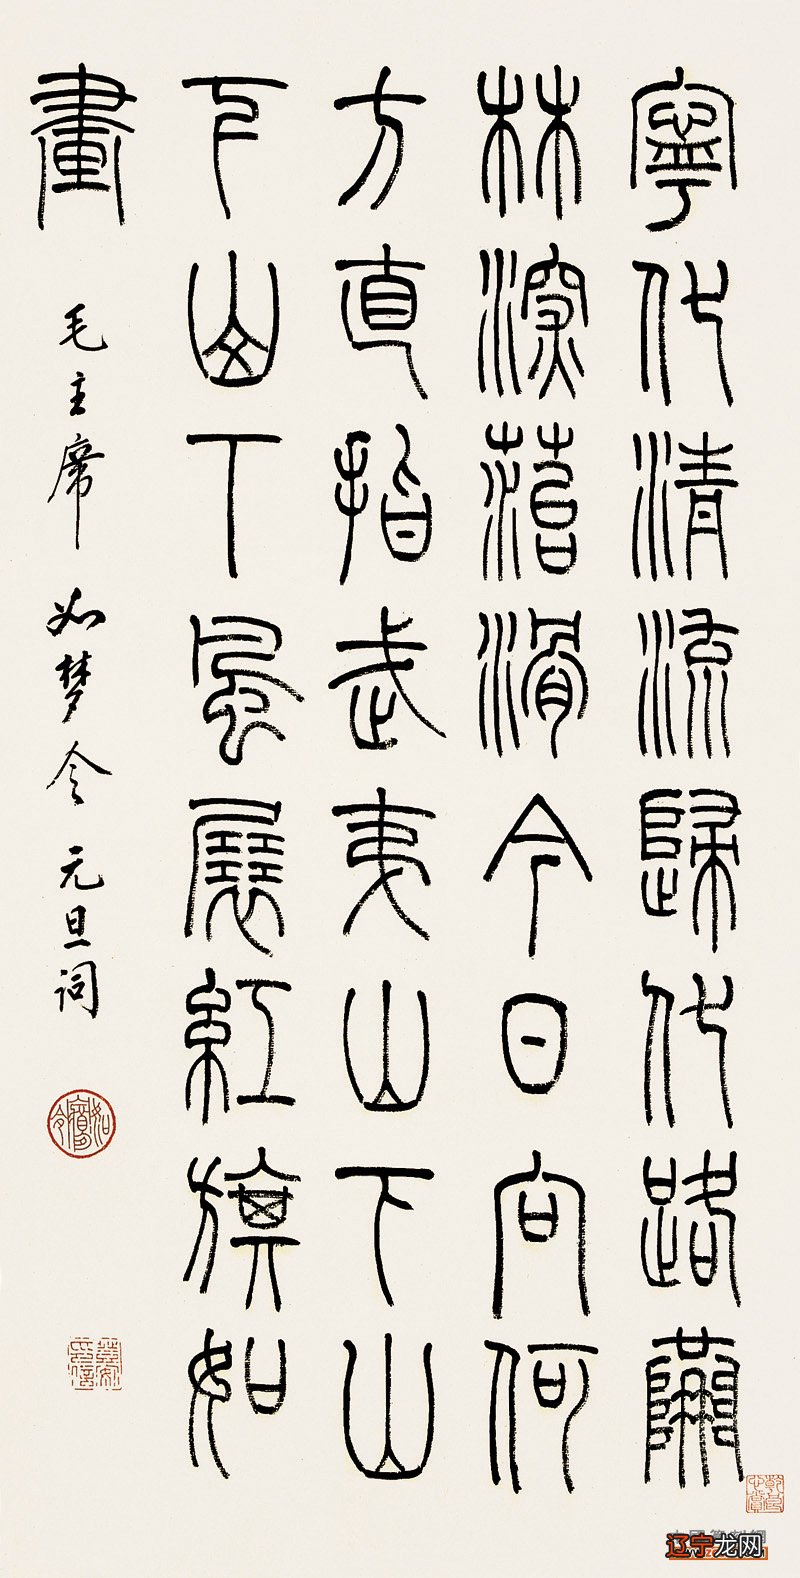 寧化清流歸化路隘
林深菭滑今日向何
方直指武夷山下山
下山下風展紅旗如
畫
毛主席如梦令元旦词
辽宁龙网